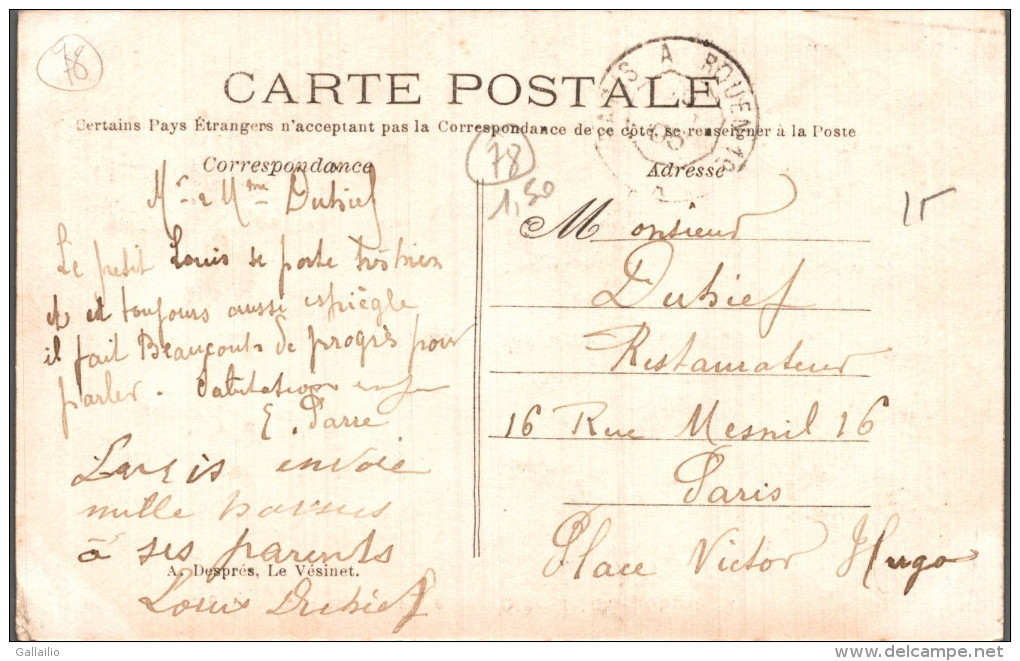 78
CARTE POSTALE
Certains Pays Étrangers n'acceptant pas la Correspondance de ce côté, se renseigner à la Poste
Correspondance
Mr & Mme Duhief
Le petit Louis se porte très bien
et est toujours aussi espiègle
il fait Beaucoup de progrès pour
parler. Salutations
E. Parre
Louis envoie
mille
à ses parents
A. Després, Le Vésinet.
Louis Duhief
78
1,50
PARIS A ROUEN
Adresse
15
Monsieur
Duhief
Restaurateur
16 Rue Mesnil 16
Paris
Place Victor Hugo
Gallailio
www.delcampe.net